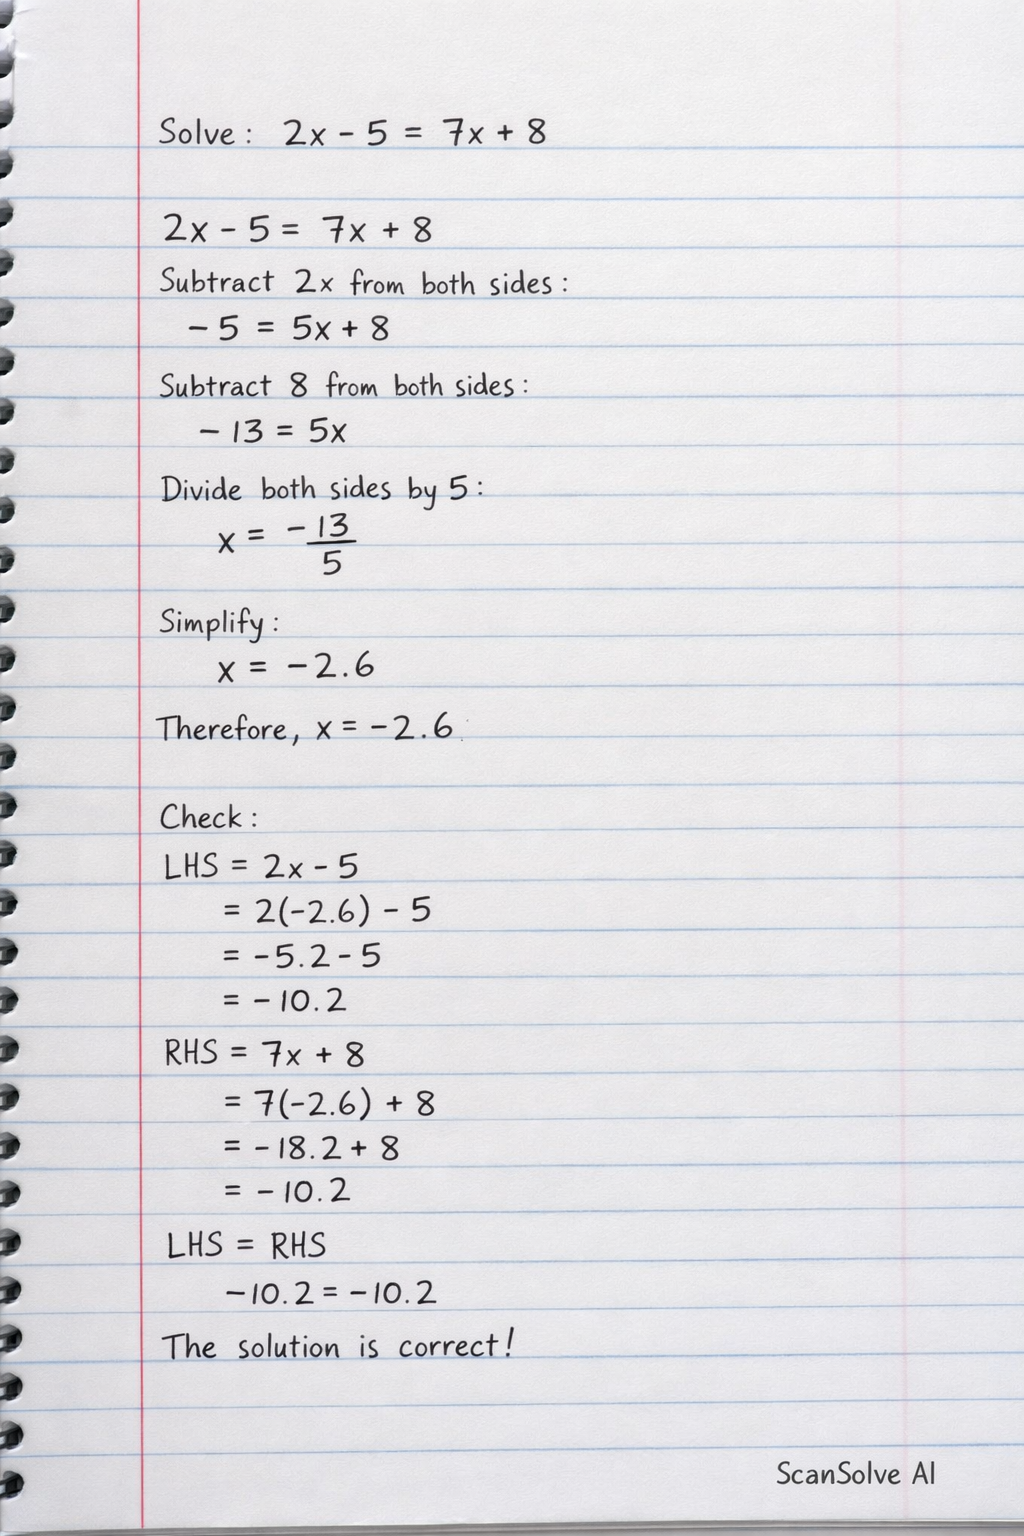 Solve: 2x - 5 = 7x + 8
2x - 5 = 7x + 8
Subtract 2x from both sides:
- 5 = 5x + 8
Subtract 8 from both sides:
- 13 = 5x
Divide both sides by 5:
x = -13/5
Simplify:
x = -2.6
Therefore, x = -2.6
Check:
LHS = 2x - 5
= 2(-2.6) - 5
= -5.2 - 5
= -10.2
RHS = 7x + 8
= 7(-2.6) + 8
= -18.2 + 8
= -10.2
LHS = RHS
-10.2 = -10.2
The solution is correct!
ScanSolve AI